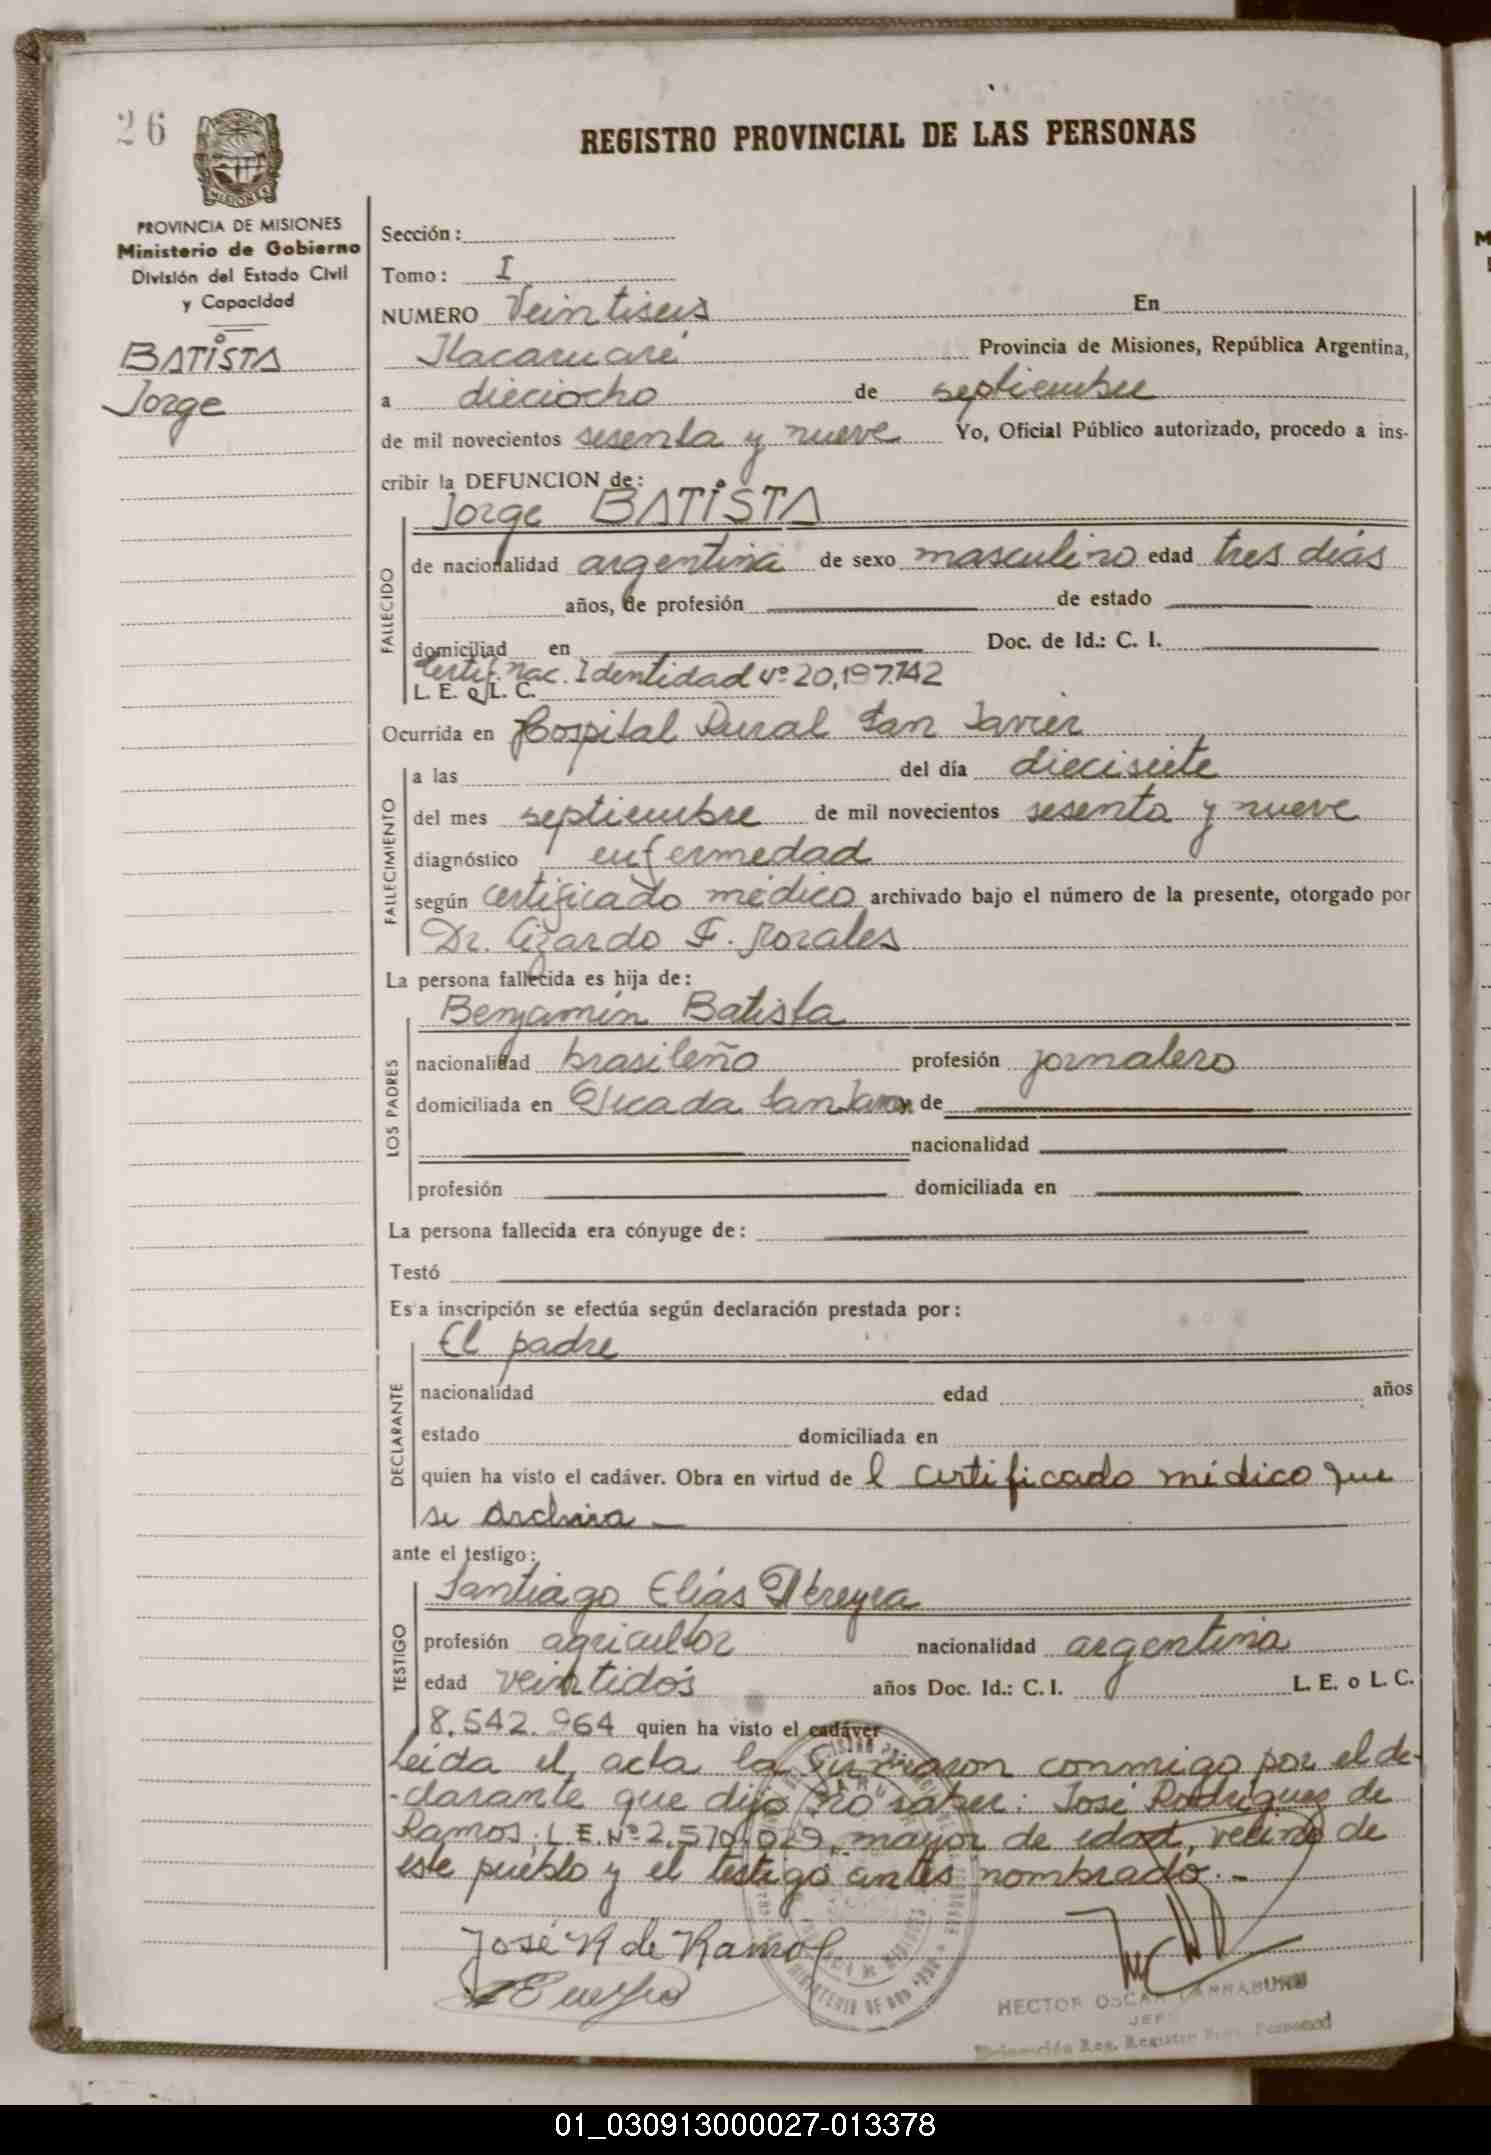 26
REGISTRO PROVINCIAL DE LAS PERSONAS
MISIONES
PROVINCIA DE MISIONES
Ministerio de Gobierno
División del Estado Civil
y Capacidad
BATISTA
Jorge
Sección:
Tomo: I
NUMERO Veintiseis En
Itacaruaré Provincia de Misiones, República Argentina,
a dieciocho de septiembre
de mil novecientos sesenta y nueve Yo, Oficial Público autorizado, procedo a ins-
cribir la DEFUNCION de:
Jorge BATISTA
FALLECIDO
de nacionalidad argentina de sexo masculino edad tres días
años, de profesión de estado
domiciliad en Doc. de Id.: C. I.
Certif. Nac. Identidad Nº 20,197.742
L. E. o L. C.
Ocurrida en Hospital Rural San Javier
FALLECIMIENTO
a las del día diecisiete
del mes septiembre de mil novecientos sesenta y nueve
diagnóstico enfermedad
según certificado médico archivado bajo el número de la presente, otorgado por
Dr. Lizardo F. Morales
La persona fallecida es hija de:
LOS PADRES
Benjamín Batista
nacionalidad brasileño profesión jornalero
domiciliada en Picada San Javier de
nacionalidad
profesión domiciliada en
La persona fallecida era cónyuge de:
Testó
Es a inscripción se efectúa según declaración prestada por:
DECLARANTE
El padre
nacionalidad edad años
estado domiciliada en
quien ha visto el cadáver. Obra en virtud de l certificado médico que
se archiva
ante el testigo:
TESTIGO
Santiago Elías Pereyra
profesión agricultor nacionalidad argentina
edad veintidós años Doc. Id.: C. I. L. E. o L. C.
8.542.964 quien ha visto el cadáver
Leida el acta la firmaron conmigo por el de-
-clarante que dijo no saber: José Rodriguez de
Ramos, L.E.Nº 2.570.029, mayor de edad, vecino de
este pueblo y el testigo antes nombrado.-
José R de Ramos
HECTOR OSCAR
JEFE
01_030913000027-013378